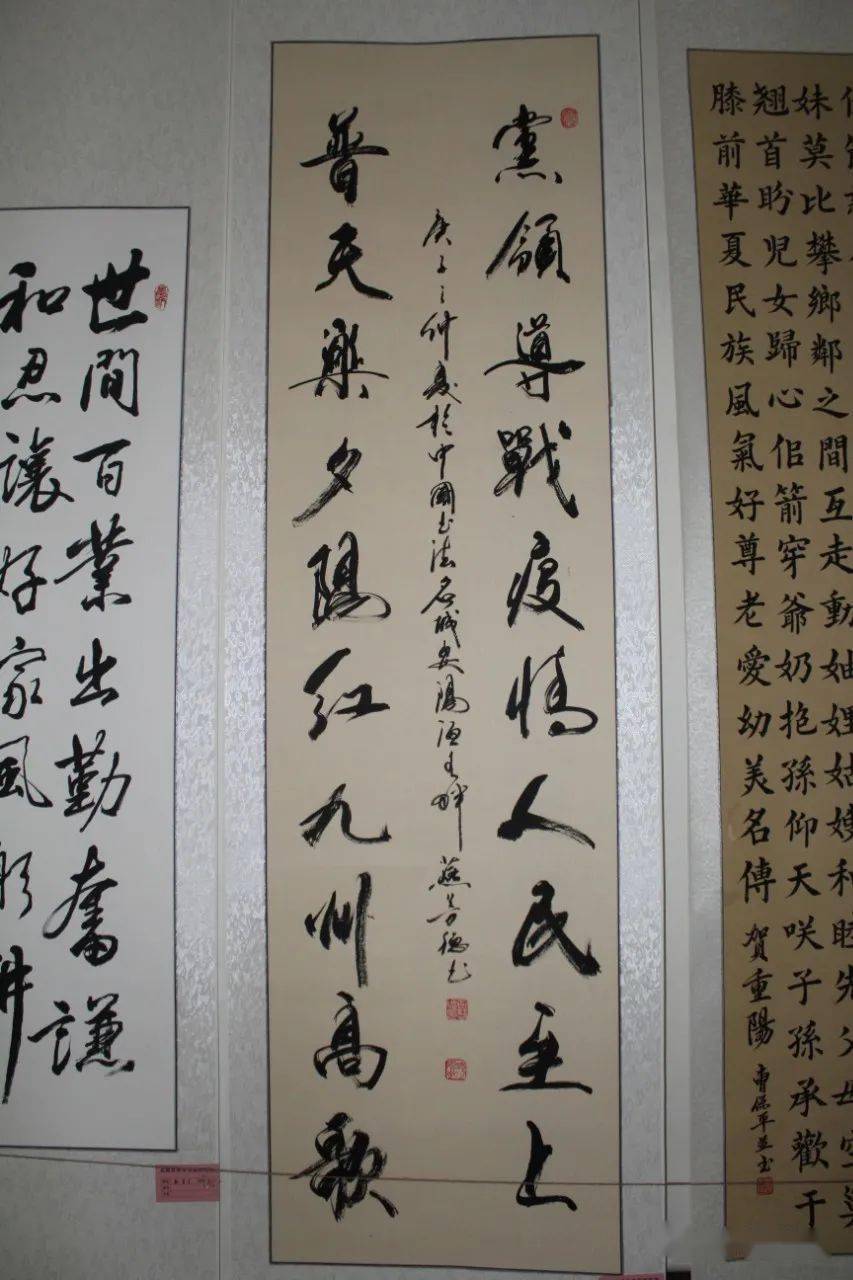 妹莫比攀鄉鄰之間互走動妯娌姑嫂和睦先父母空巢
翹首盼兒女歸心佀箭穿爺奶抱孫仰天咲子孫承歡于
膝前華夏民族風氣好尊老愛幼美名傳
賀重陽
黨領導戰疫情人民至上
普天樂夕陽紅九州高歌
庚子之仲夏於中國書法名城安陽洹水畔
世間百業出勤奮謙
和忍讓好家風